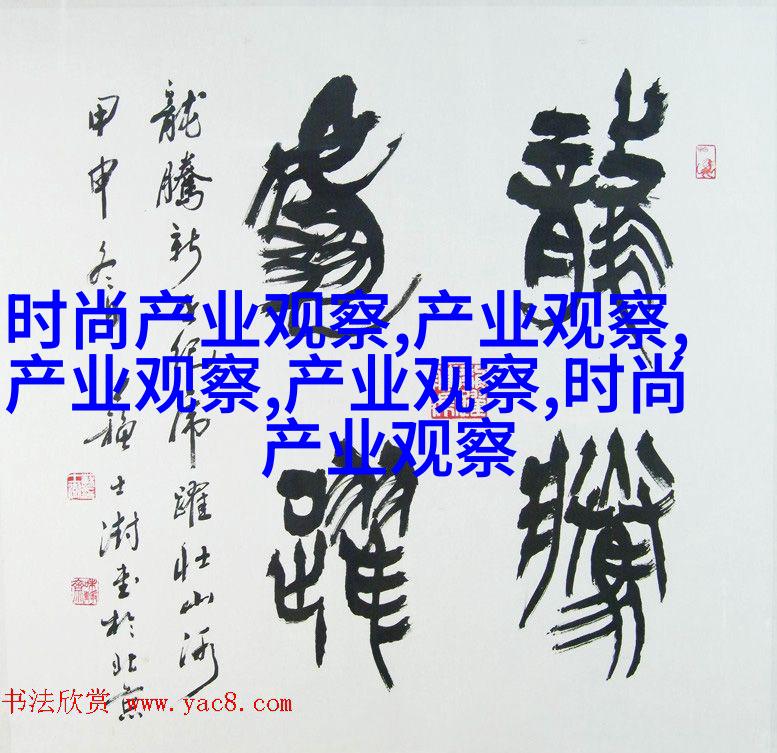 龍騰
虎躍
龍騰新世紀虎躍壯山河
甲申冬 蘇士澍书於北京
时尚产业观察,产业观察,
产业观察,产业观察,时尚
产业观察
书法欣赏 www.yac8.com